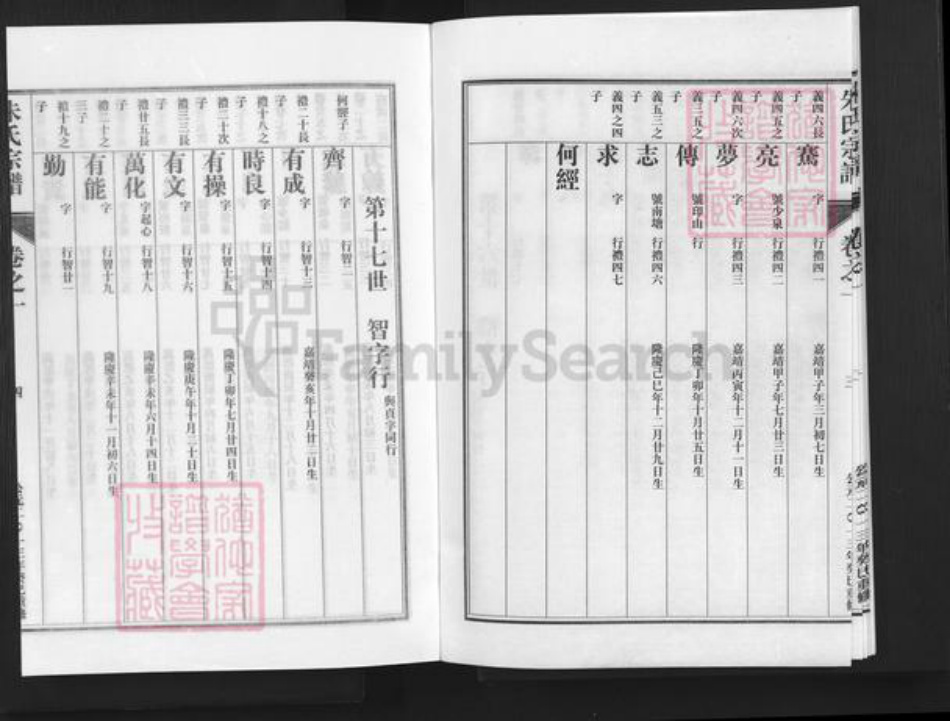 朱氏宗譜
卷之一
義四六長子
騫
字
行禮四一
嘉靖甲子年三月初七日生
義四五之子
亮
號少泉
行禮四二
嘉靖甲子年七月廿三日生
義四六次子
夢
字
行禮四三
嘉靖丙寅年十二月十一日生
義三五之子
傳
號印山
行
隆慶丁卯年十月廿五日生
義五三之子
志
號南塘
行禮四六
隆慶己巳年十二月廿九日生
義四之四子
求
字
行禮四七
何經
第十七世 智字行 與貞字同行
何經子
齊
字
行智二
禮二十長子
有成
字
行智十三
嘉靖癸亥年十月廿三日生
禮十八之子
時良
字
行智十四
禮二十次子
有操
字
行智十五
隆慶丁卯年七月廿四日生
禮三三長子
有文
字
行智十六
隆慶庚午年十月三十日生
禮廿五長子
萬化
字起心
行智十八
隆慶辛未年六月十四日生
禮二十之三子
有能
字
行智十九
隆慶辛未年十一月初六日生
禮十九之子
勤
字
行智廿一
朱氏宗譜
卷之一
四
FamilySearch